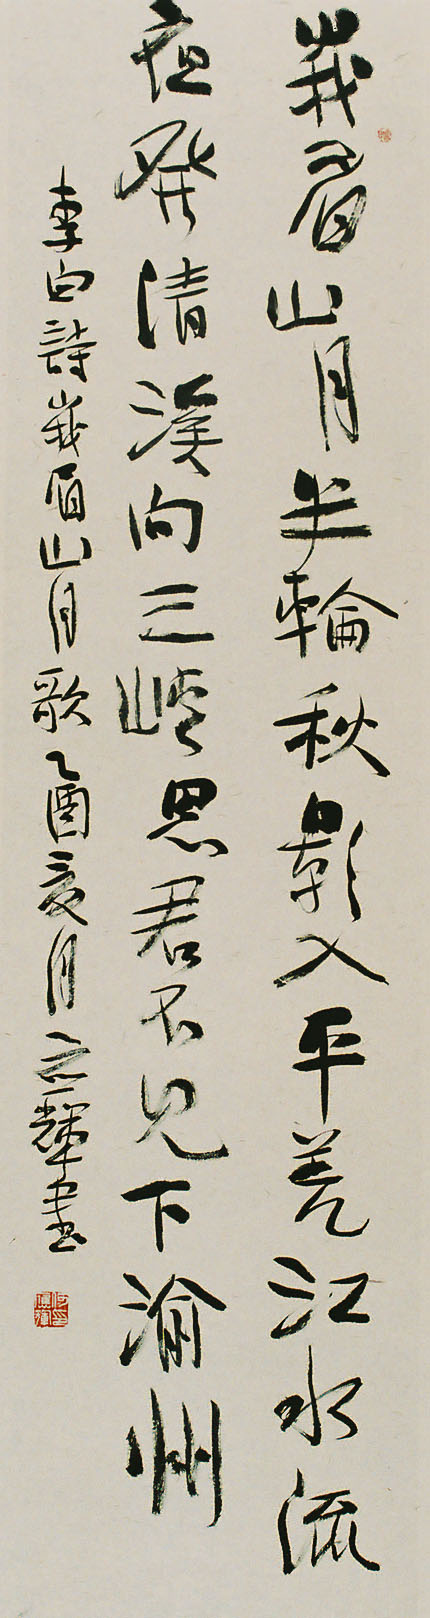 峩眉山月半輪秋影入平羌江水流
夜發清溪向三峽思君不見下渝州
李白詩峩眉山月歌乙酉亥月应輝書